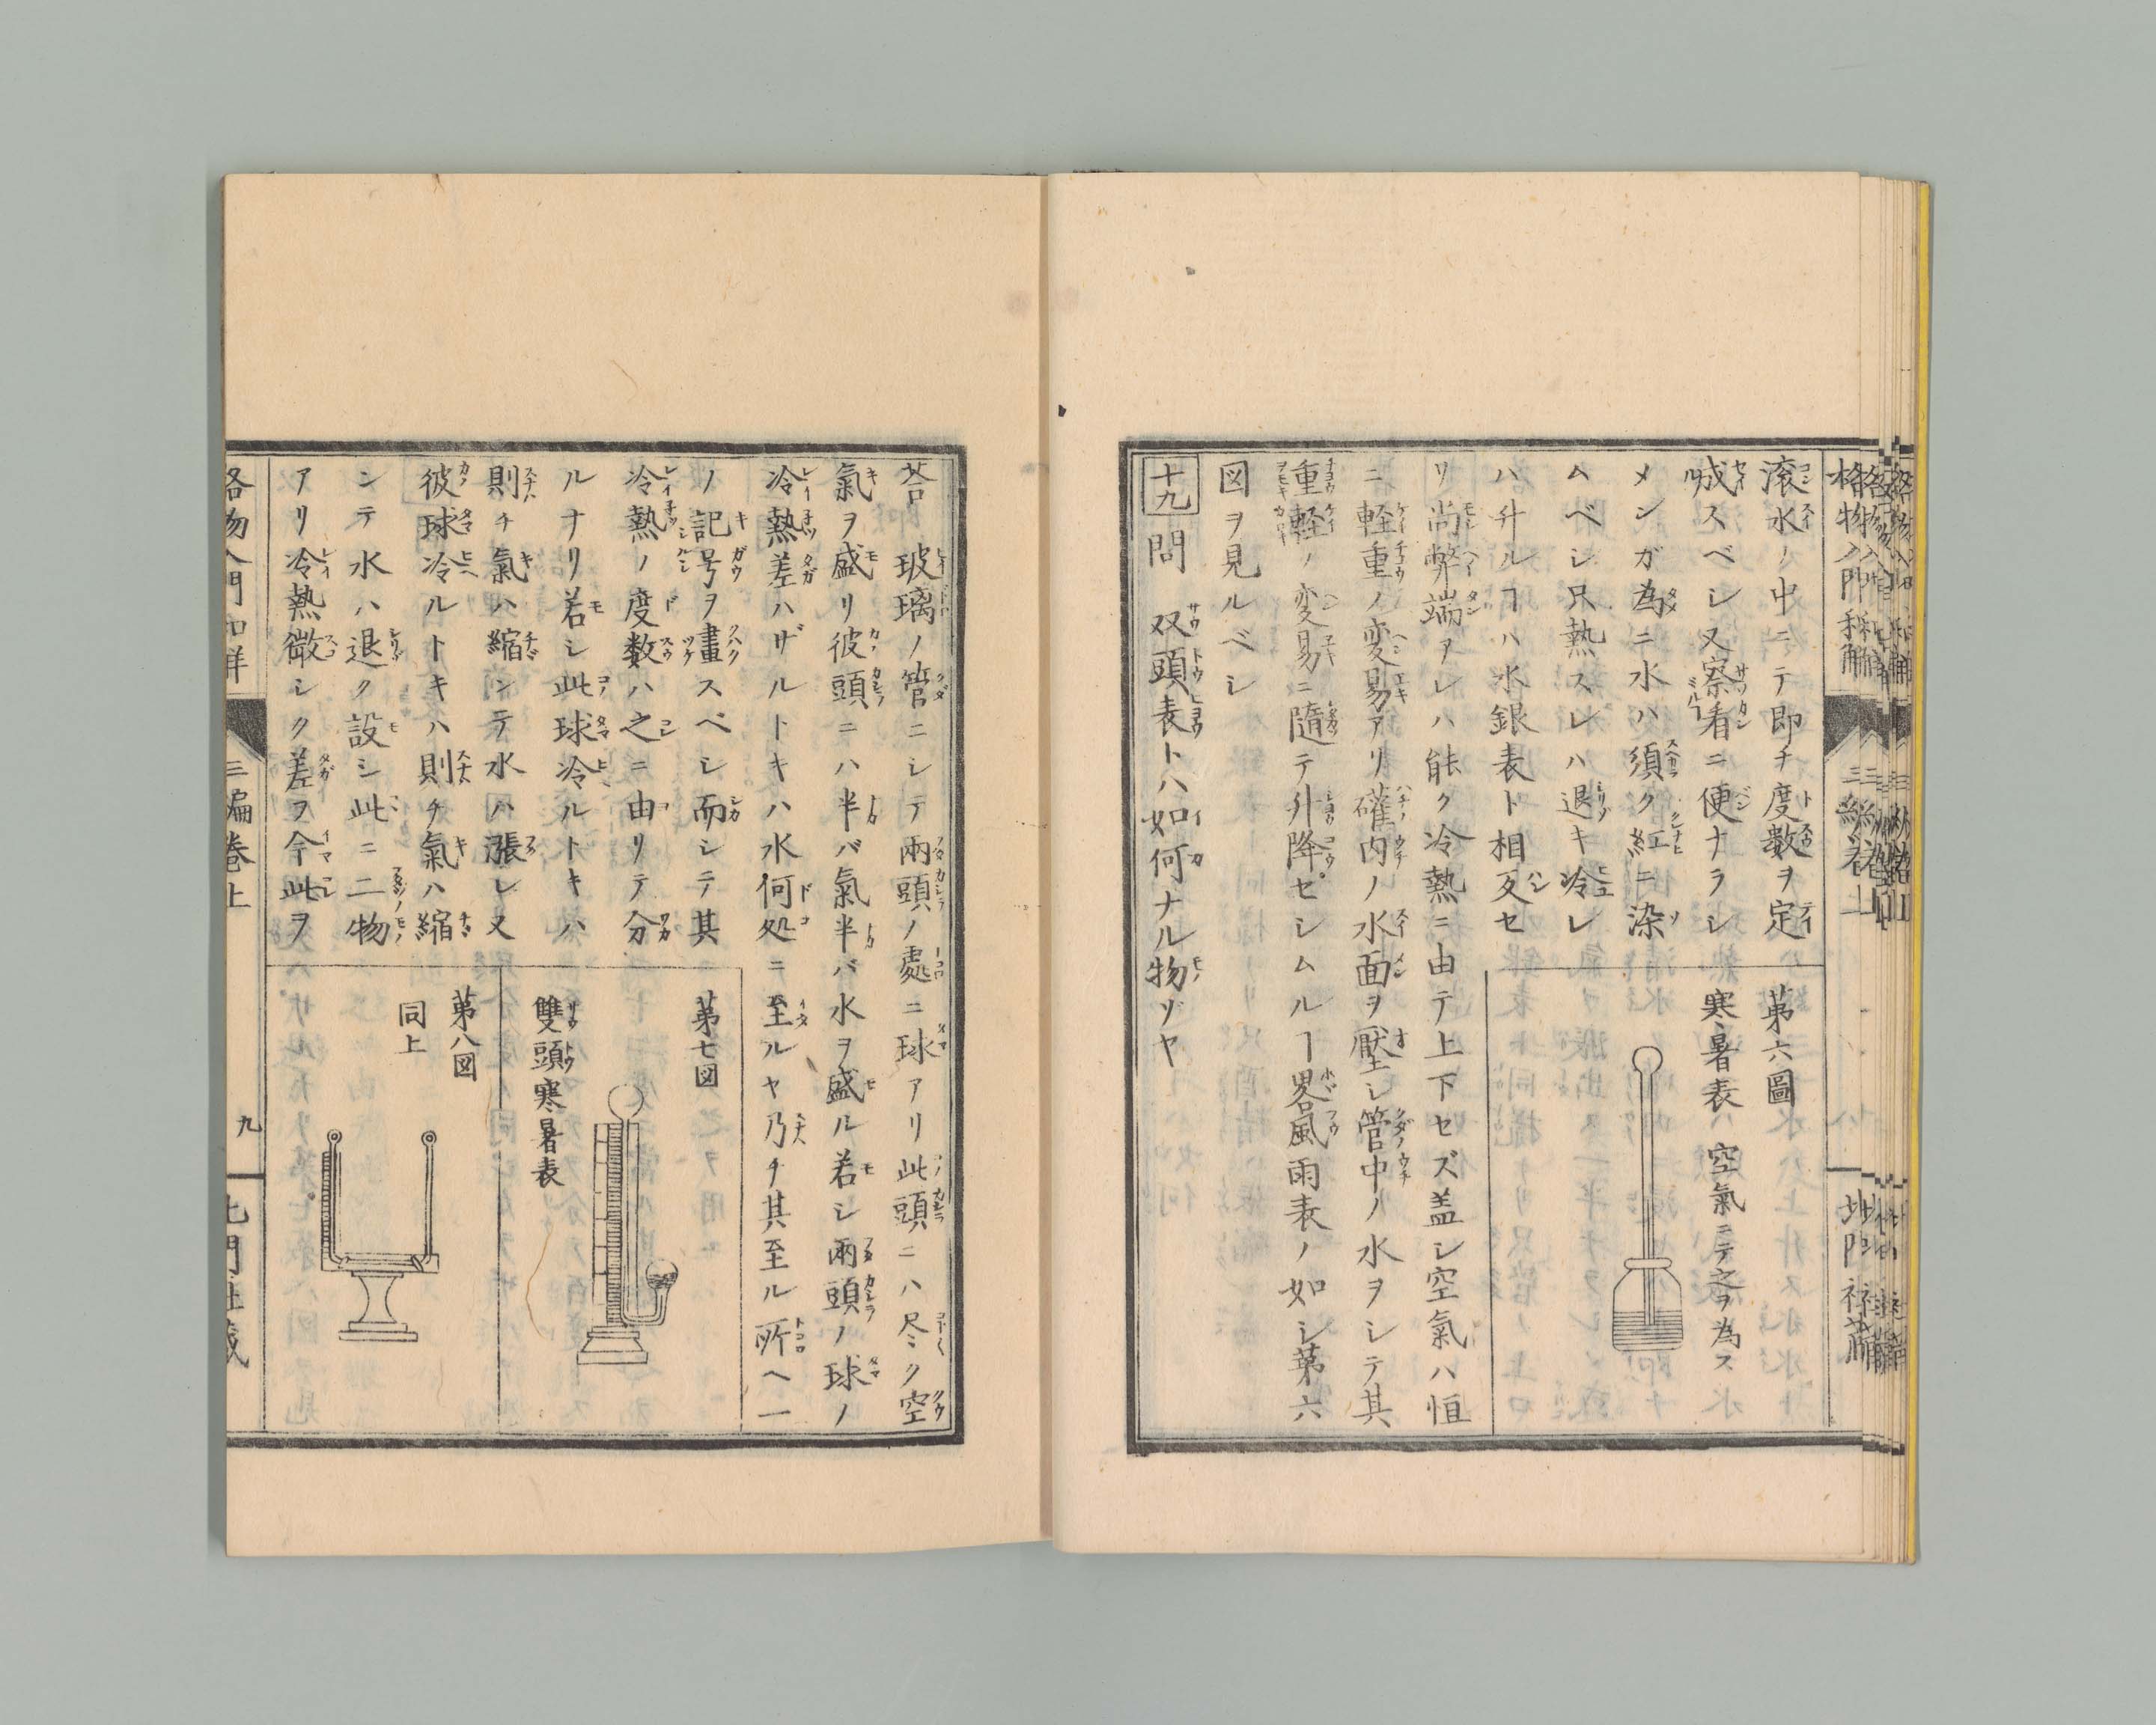 滾水ノ中ニテ即チ度数ヲ定
喊スベシ又察看ニ便ナラシ
メンガ為ニ水ハ須ク紅ニ染
ムベシ只熱スレハ退キ冷レ
ハ升ルヿハ水銀表ト相反セ
第六圖
寒暑表 空氣ニテ之ヲ為ス
リ尚弊端アレハ能ク冷熱ニ由テ上下セズ盖シ空氣ハ恒
ニ軽重ノ変易アリ礶内ノ水面ヲ壓シ管中ノ水ヲシテ其
重軽ノ変易ニ隨テ升降セシムルヿ畧風雨表ノ如シ第六
図ヲ見ルベシ
十九 問 双頭表トハ如何ナル物ゾヤ
荅 玻璃ノ管ニシテ兩頭ノ處ニ球アリ此頭ニハ尽ク空
氣ヲ盛リ彼頭ニハ半バ氣半バ水ヲ盛ル若シ兩頭ノ球ノ
冷熱差ハザルトキハ水何処ニ至ルヤ乃チ其至ル所ヘ一
ノ記号ヲ畫スベシ而シテ其
冷熱ノ度数ハ之ニ由リテ分
ルナリ若シ此球冷ルトキハ
則チ氣ハ縮ンテ水ハ漲レ又
彼球冷ルトキハ則チ氣ハ縮
ンテ水ハ退ク設シ此ニ二物
アリ冷熱微シク差ヲ今此ヲ
第七図
雙頭寒暑表
第八図
同上
格物入門和解
三編巻上
九
北門社蔵